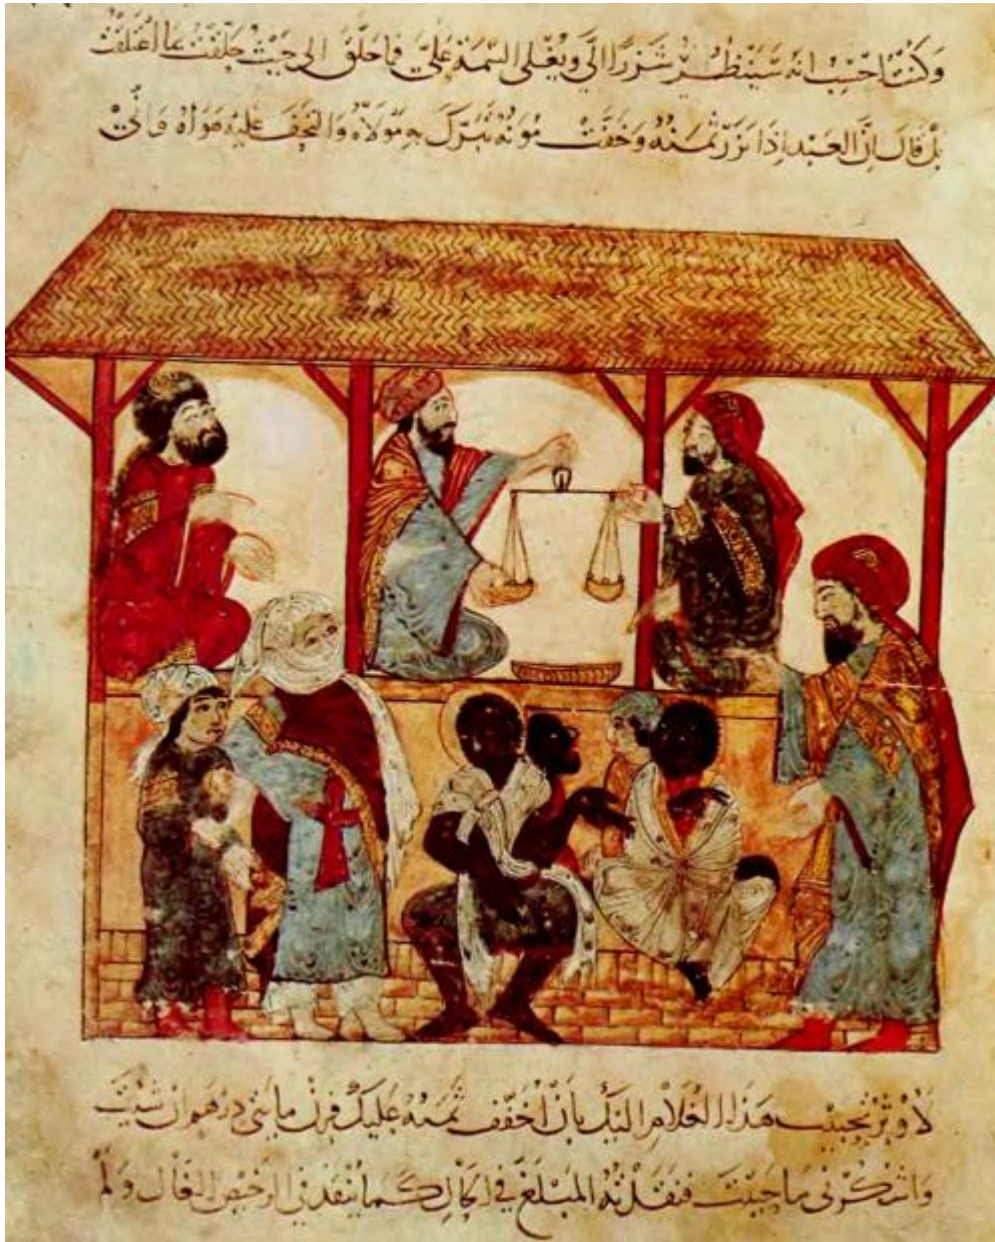 وكنت احسب انه سينظر شزرا الي ويغلي السيمة علي فما حلق الى حيث حلقت ولا اعتلق بما اعتلقت
بل قال ان العبد اذا نزر ثمنه وخفت مونه تبرك به مولاه والتحف عليه هواه واني
لاوثر تحبيب هذا الغلام اليك بان اخفف ثمنه عليك فزن مايتي درهم ان شيت
واشكرني ما حييت فنقدته المبلغ في الحال كما ينقد في الرخيص الغال ولم